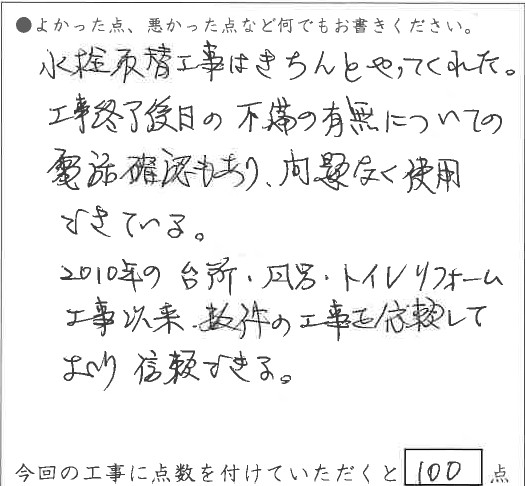 ●よかった点、悪かった点など何でもお書きください。
水栓取替工事はきちんとやってくれた。
工事終了後日の不備の有無についての
電話確認もあり、問題なく使用
できている。
2010年の台所・風呂・トイレリフォーム
工事以来、数件の工事を依頼して
おり信頼できる。
今回の工事に点数を付けていただくと 100 点